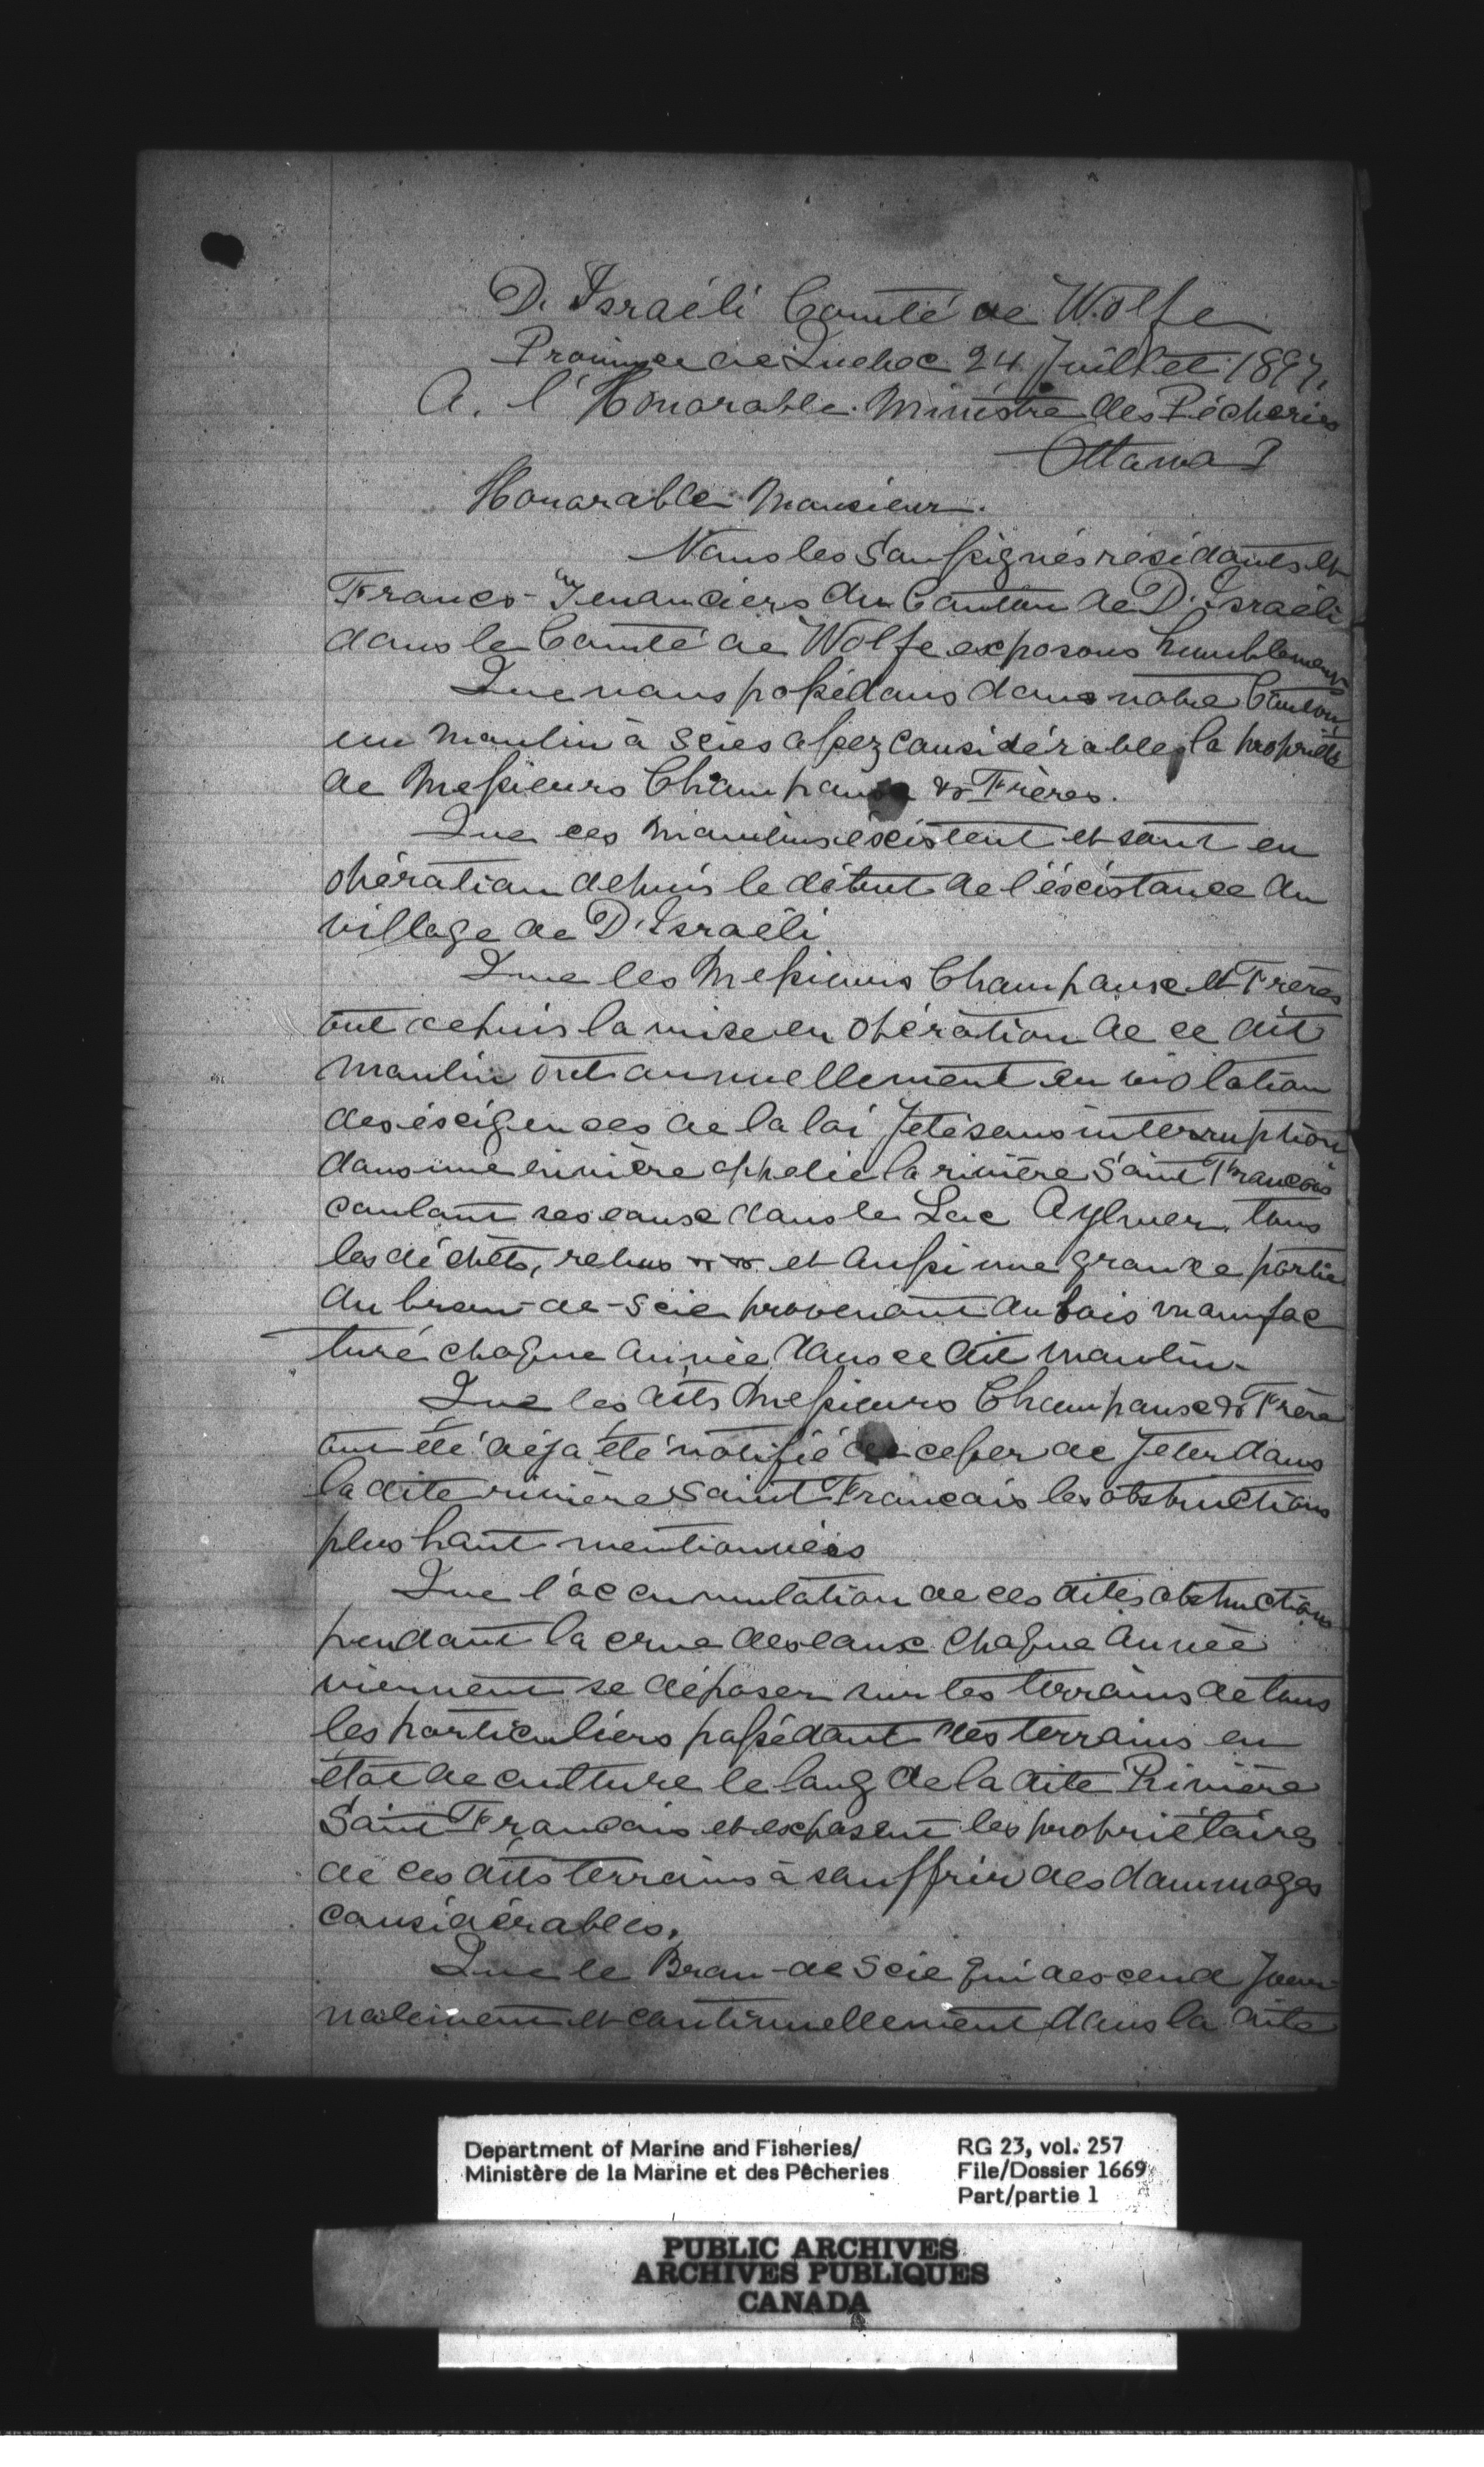 D'Israéli Comté de Wolfe
Province de Quebec 24 Juillet 1897,
A. l'Honorable Ministre des Pêcheries
Ottawa
Honorable Monsieur.
Nous les Soussignés résidants et
Francs-Tenanciers du Canton de D'Israéli
dans le Comté de Wolfe exposons humblement
Que nous possédons dans notre Canton
un moulin à scies assez considérable, la propriété
de Messieurs Champoux & Frères.
Que ces moulins éxistent et sont en
opération depuis le début de l'éxistance du
village de D'Israéli
Que les Messieurs Champoux et Frères
ont depuis la mise en opération de ce dit
moulin ont annuellement en violation
des éxigences de la loi, Jeté sans interruption
dans une rivière appelée la rivière Saint François
coulant ses eaux dans le Lac Aylmer, tous
les déchèts, rebus & & et aussi une grande partie
du bran-de-scie provenant du bois manufac
turé chaque année dans ce dit moulin.
Que les dits Messieurs Champoux & Frère
ont été déja été notifié de cesser de Jeter dans
la dite rivière Saint François les obstructions
plus haut mentionnées
Que l'accumulation de ces dites obstructions
pendant la crue des eaux chaque année
viennent se déposer sur les terrains de tous
les particuliers possédant des terrains en
état de culture le long de la dite Rivière
Saint François et exposent les propriétaires
de ces dits terrains à souffrir des dommages
considérables.
Que le Bran-de Scie qui descend Jour-
nalement et continuellement dans la dite
Department of Marine and Fisheries/
Ministère de la Marine et des Pêcheries
RG 23, vol. 257
File/Dossier 1669
Part/partie 1
PUBLIC ARCHIVES
ARCHIVES PUBLIQUES
CANADA